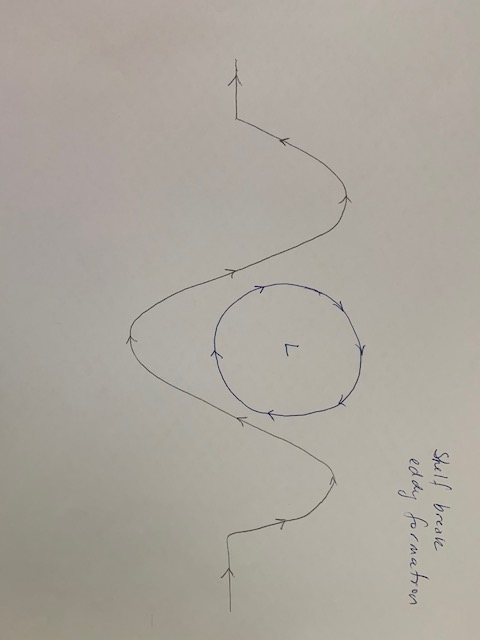 Shelf break
eddy formation
L